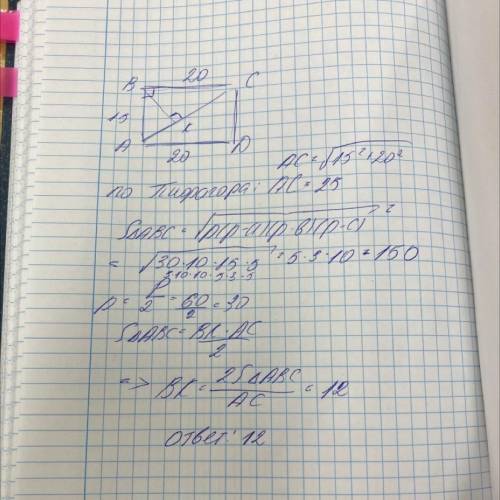 20
B C
15
K
A D
20
AC = √15² + 20²
по Пифагора: AC = 25
S△ABC = √p(p-a)(p-b)(p-c) =
= √30·10·15·5 = 5·3·10 = 150
3·10·10·5·3·5
p = P/2 = 60/2 = 30
S△ABC = BK·AC/2
=> BK = 2S△ABC/AC = 12
Ответ: 12